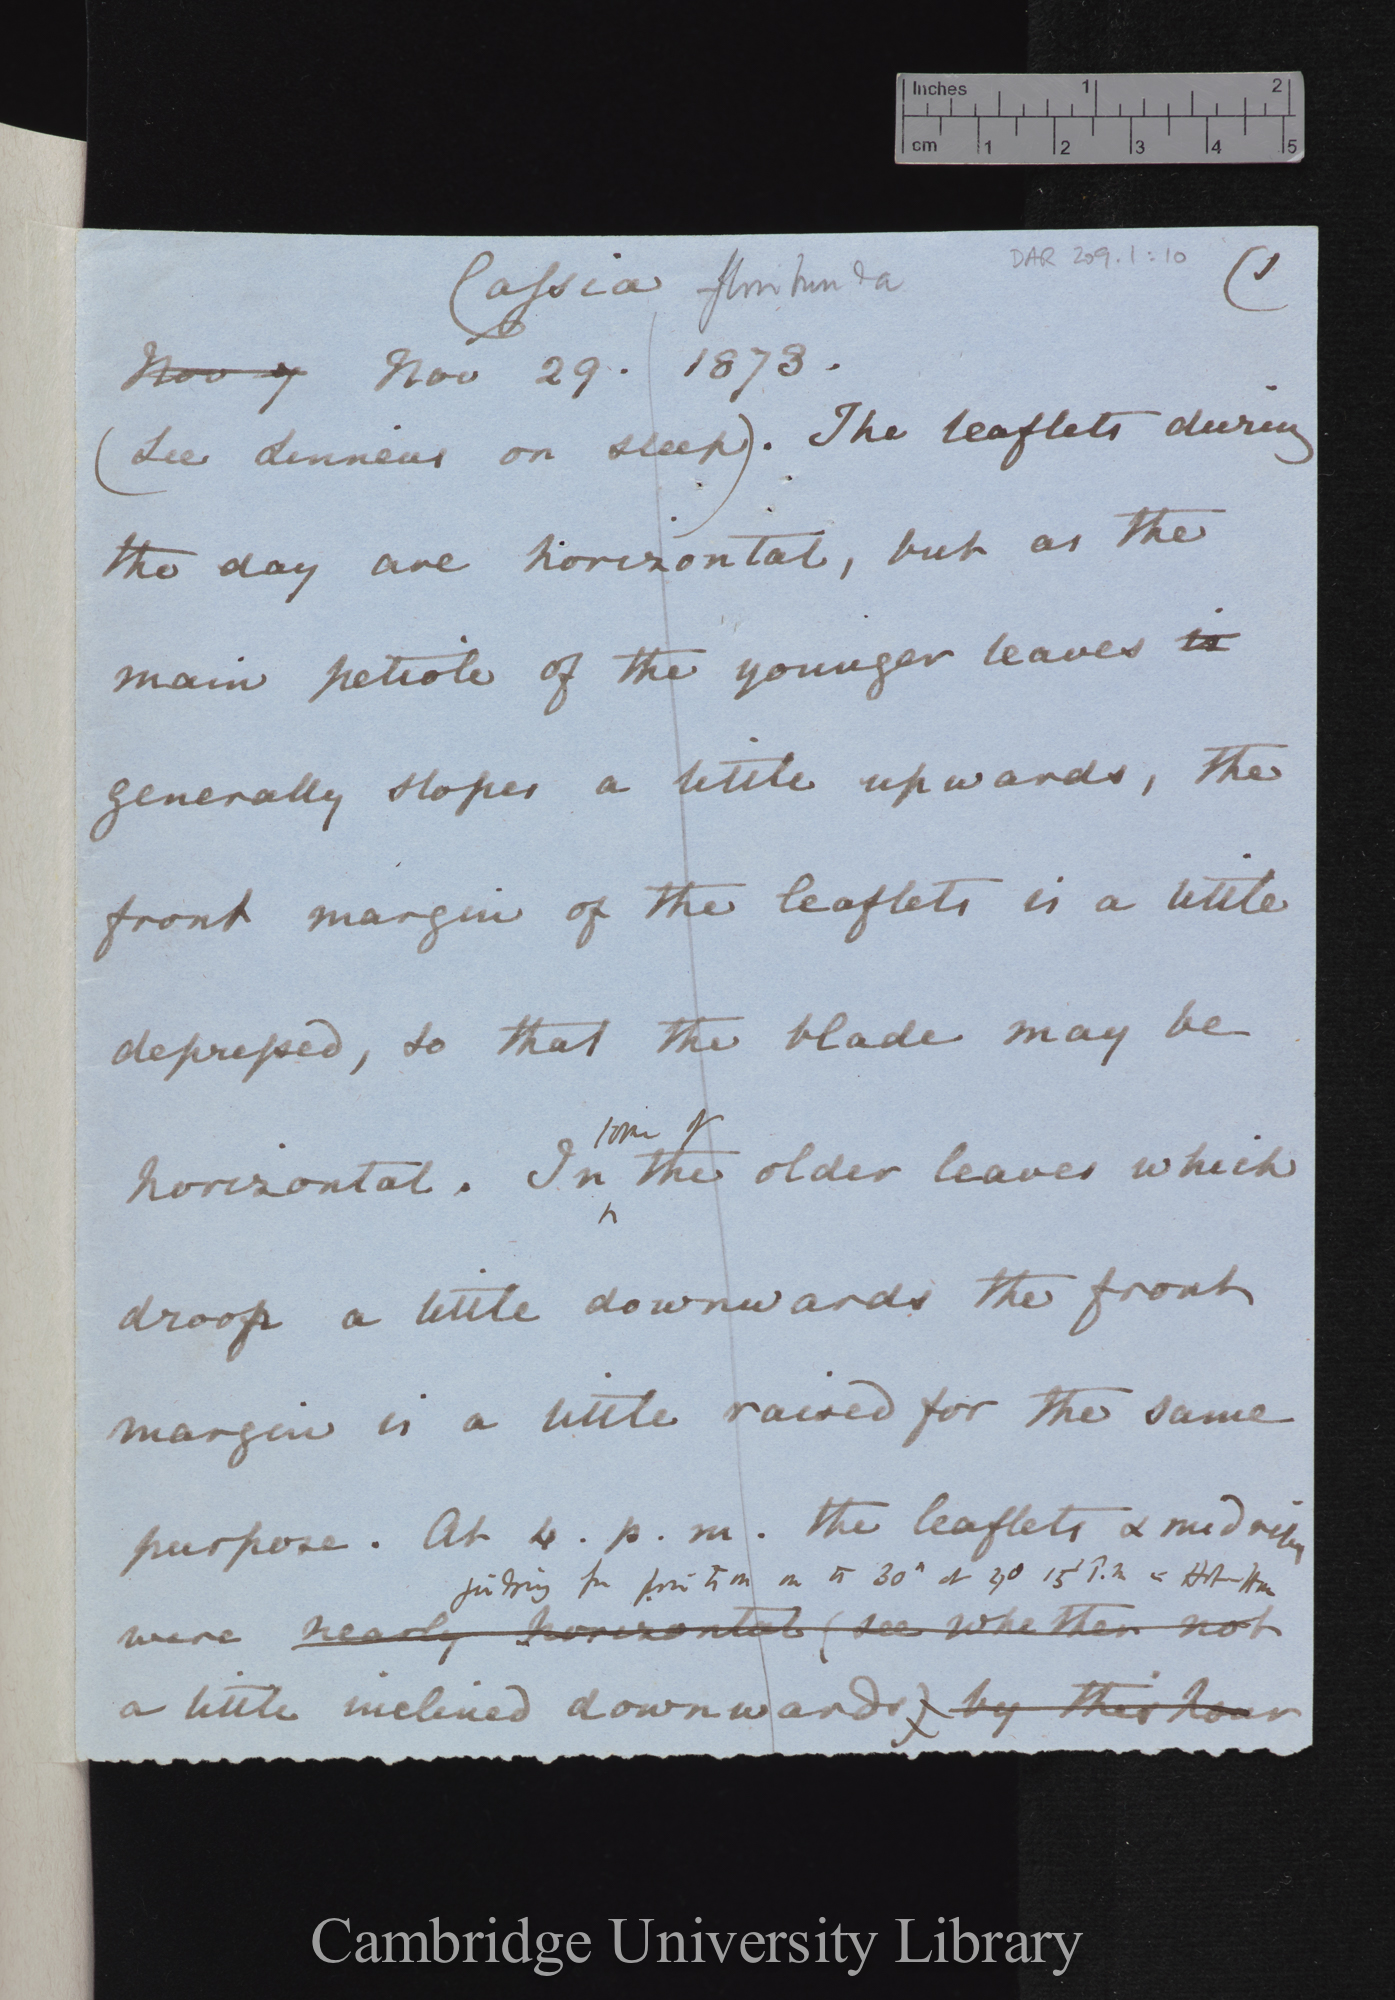 Inches 1 2
cm 1 2 3 4 5
DAR 209.1:10
(1
Cassia floribunda
Nov 7 Nov 29. 1873.
(See Linneus on sleep). The leaflets during
the day are horizontal, but as the
main petiole of the younger leaves is
generally slopes a little upwards, the
front margin of the leaflets is a little
depressed, so that the blade may be
some of
horizontal. In the older leaves which
droop a little downwards the front
margin is a little raised for the same
purpose. At 4. p. m. the leaflets & midribs
judging from position to 30° at 2° 15' P.m in Hot-House
were nearly horizontal (see whether not
a little inclined downwards) by this hour
Cambridge University Library